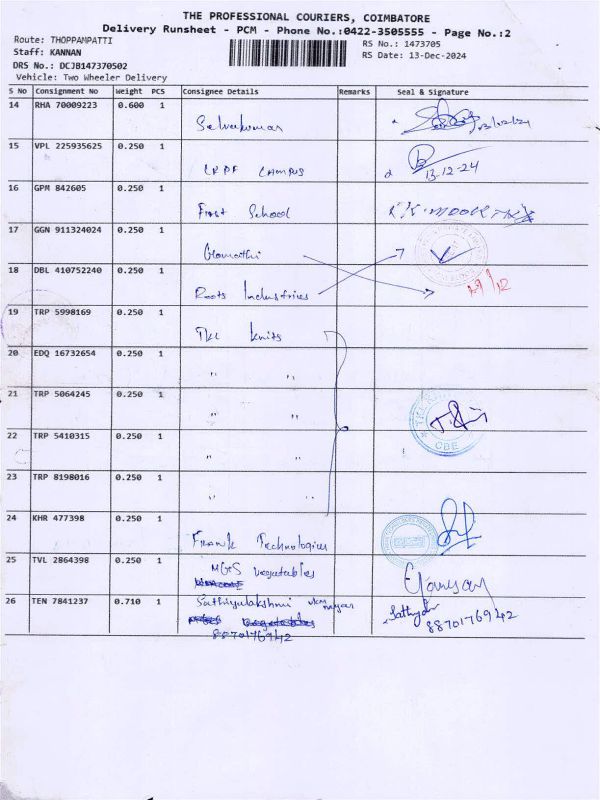 THE PROFESSIONAL COURIERS, COIMBATORE
Delivery Runsheet - PCM - Phone No.:0422-3505555 - Page No.:2
Route: THOPPAMPATTI
Staff: KANNAN
DRS No.: DCJB147370502
Vehicle: Two Wheeler Delivery
RS No.: 1473705
RS Date: 13-Dec-2024
S No Consignment No Weight PCS Consignee Details Remarks Seal & Signature
14 RHA 70009223 0.600 1
Selvakumar
15 VPL 225935625 0.250 1
CRPF CAMPUS
13-12-24
16 GPM 842605 0.250 1
First School
17 GGN 911324024 0.250 1
Gomathi
18 DBL 410752240 0.250 1
Roots Industries
19 TRP 5998169 0.250 1
TKL knits
20 EDQ 16732654 0.250 1
" "
21 TRP 5064245 0.250 1
" "
22 TRP 5410315 0.250 1
" "
CBE
23 TRP 8198016 0.250 1
" "
24 KHR 477398 0.250 1
Frank Technologies
25 TVL 2864398 0.250 1
MGS Vegetables
26 TEN 7841237 0.710 1
Sathiyalakshmi vkm nagar
8870176942
Sathiya
8870176942